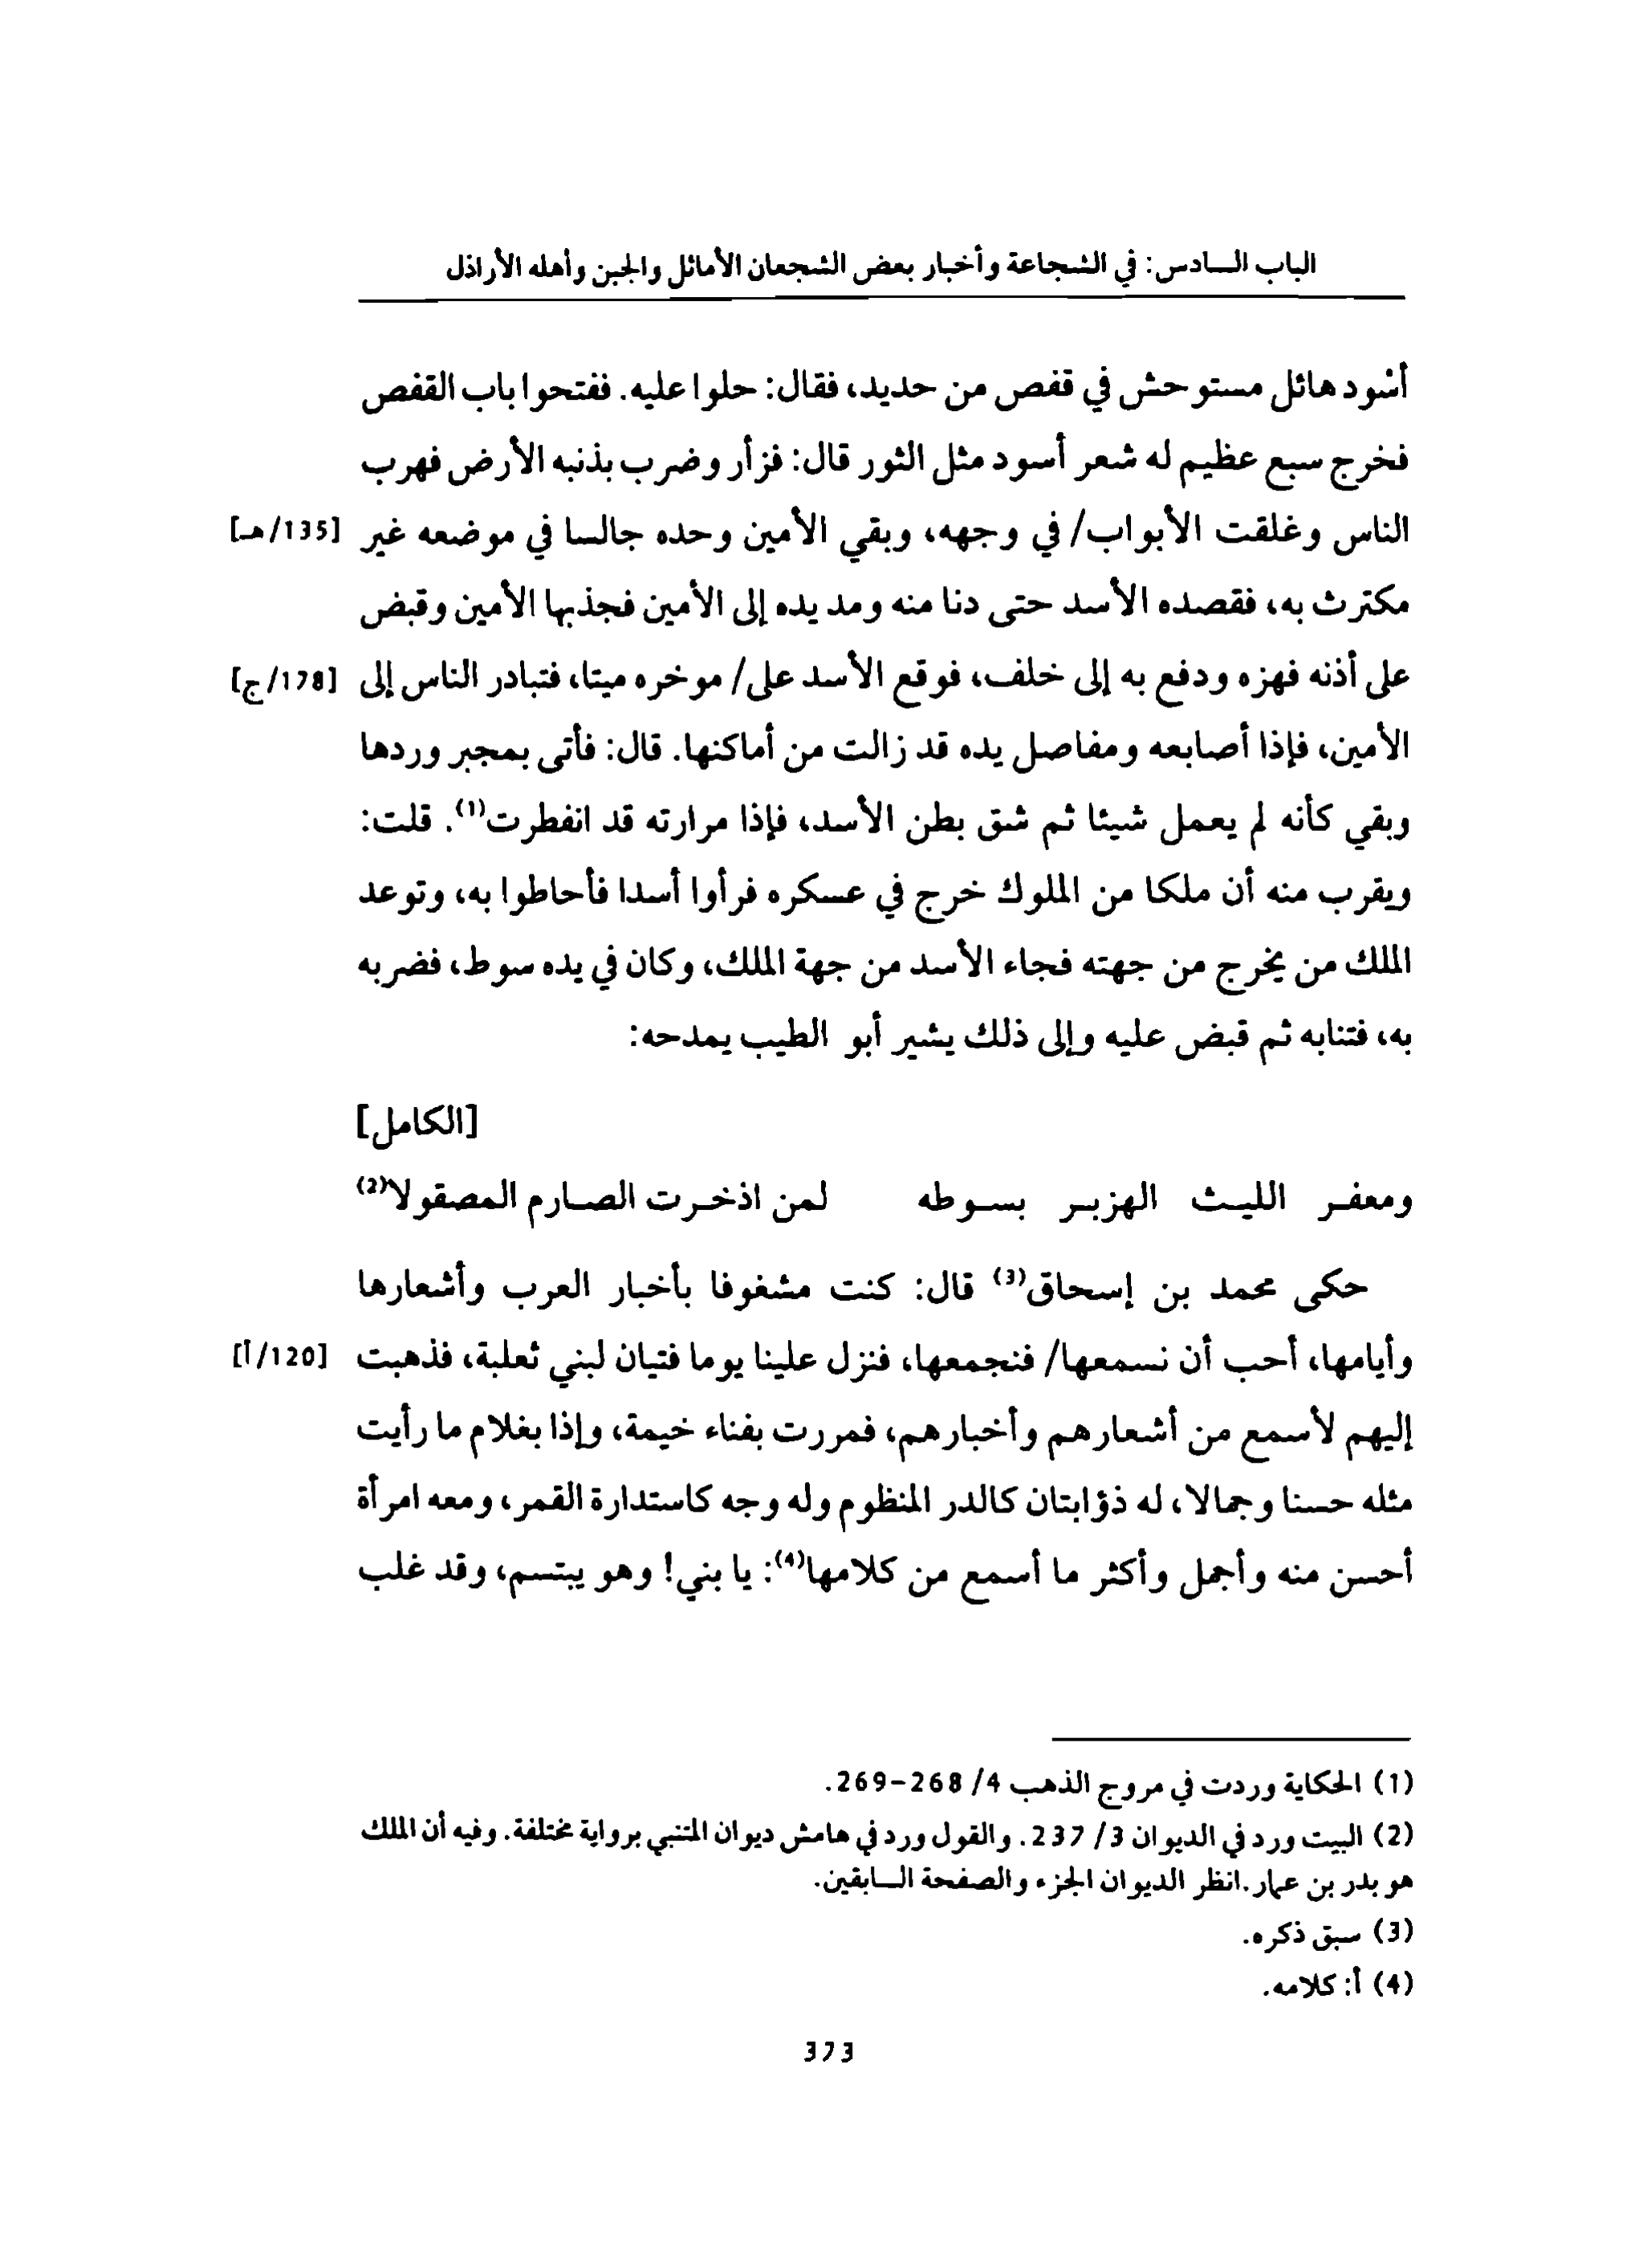 الباب السادس: في الشجاعة وأخبار بعض الشجعان الأماثل والجبن وأهله الأراذل
أسود هائل مستوحش في قفص من حديد، فقال: حلوا عليه. ففتحوا باب القفص
فخرج سبع عظيم له شعر أسود مثل الثور قال: فزأر وضرب بذنبه الأرض فهرب
الناس وغلقت الأبواب/ في وجهه، وبقي الأمين وحده جالسا في موضعه غير [135/هـ]
مكترث به، فقصده الأسد حتى دنا منه ومد يده إلى الأمين فجذبها الأمين وقبض
على أذنه فهزه ودفع به إلى خلف، فوقع الأسد على/ موخره ميتا، فتبادر الناس إلى [178/ج]
الأمين، فإذا أصابعه ومفاصل يده قد زالت من أماكنها. قال: فأتى بمجبر وردها
وبقي كأنه لم يعمل شيئا ثم شق بطن الأسد، فإذا مرارته قد انفطرت(1). قلت:
ويقرب منه أن ملكا من الملوك خرج في عسكره فرأوا أسدا فأحاطوا به، وتوعد
الملك من يخرج من جهته فجاء الأسد من جهة الملك، وكان في يده سوط، فضربه
به، فتنابه ثم قبض عليه وإلى ذلك يشير أبو الطيب يمدحه:
[الكامل]
ومعفر الليث الهزبر بسوطه لمن اذخرت الصارم المصقولا(2)
حكى محمد بن إسحاق(3) قال: كنت مشغوفا بأخبار العرب وأشعارها
وأيامها، أحب أن نسمعها/ فنجمعها، فنزل علينا يوما فتيان لبني ثعلبة، فذهبت [120/أ]
إليهم لأسمع من أشعارهم وأخبارهم، فمررت بفناء خيمة، وإذا بغلام ما رأيت
مثله حسنا وجمالا، له ذؤابتان كالدر المنظوم وله وجه كاستدارة القمر، ومعه امرأة
أحسن منه وأجمل وأكثر ما أسمع من كلامها(4): يا بني! وهو يبتسم، وقد غلب
(1) الحكاية وردت في مروج الذهب 4/ 268-269.
(2) البيت ورد في الديوان 3/ 237. والقول ورد في هامش ديوان المتنبي برواية مختلفة. وفيه أن الملك
هو بدر بن عمار.انظر الديوان الجزء والصفحة السابقين.
(3) سبق ذكره.
(4) أ: كلامه.
373